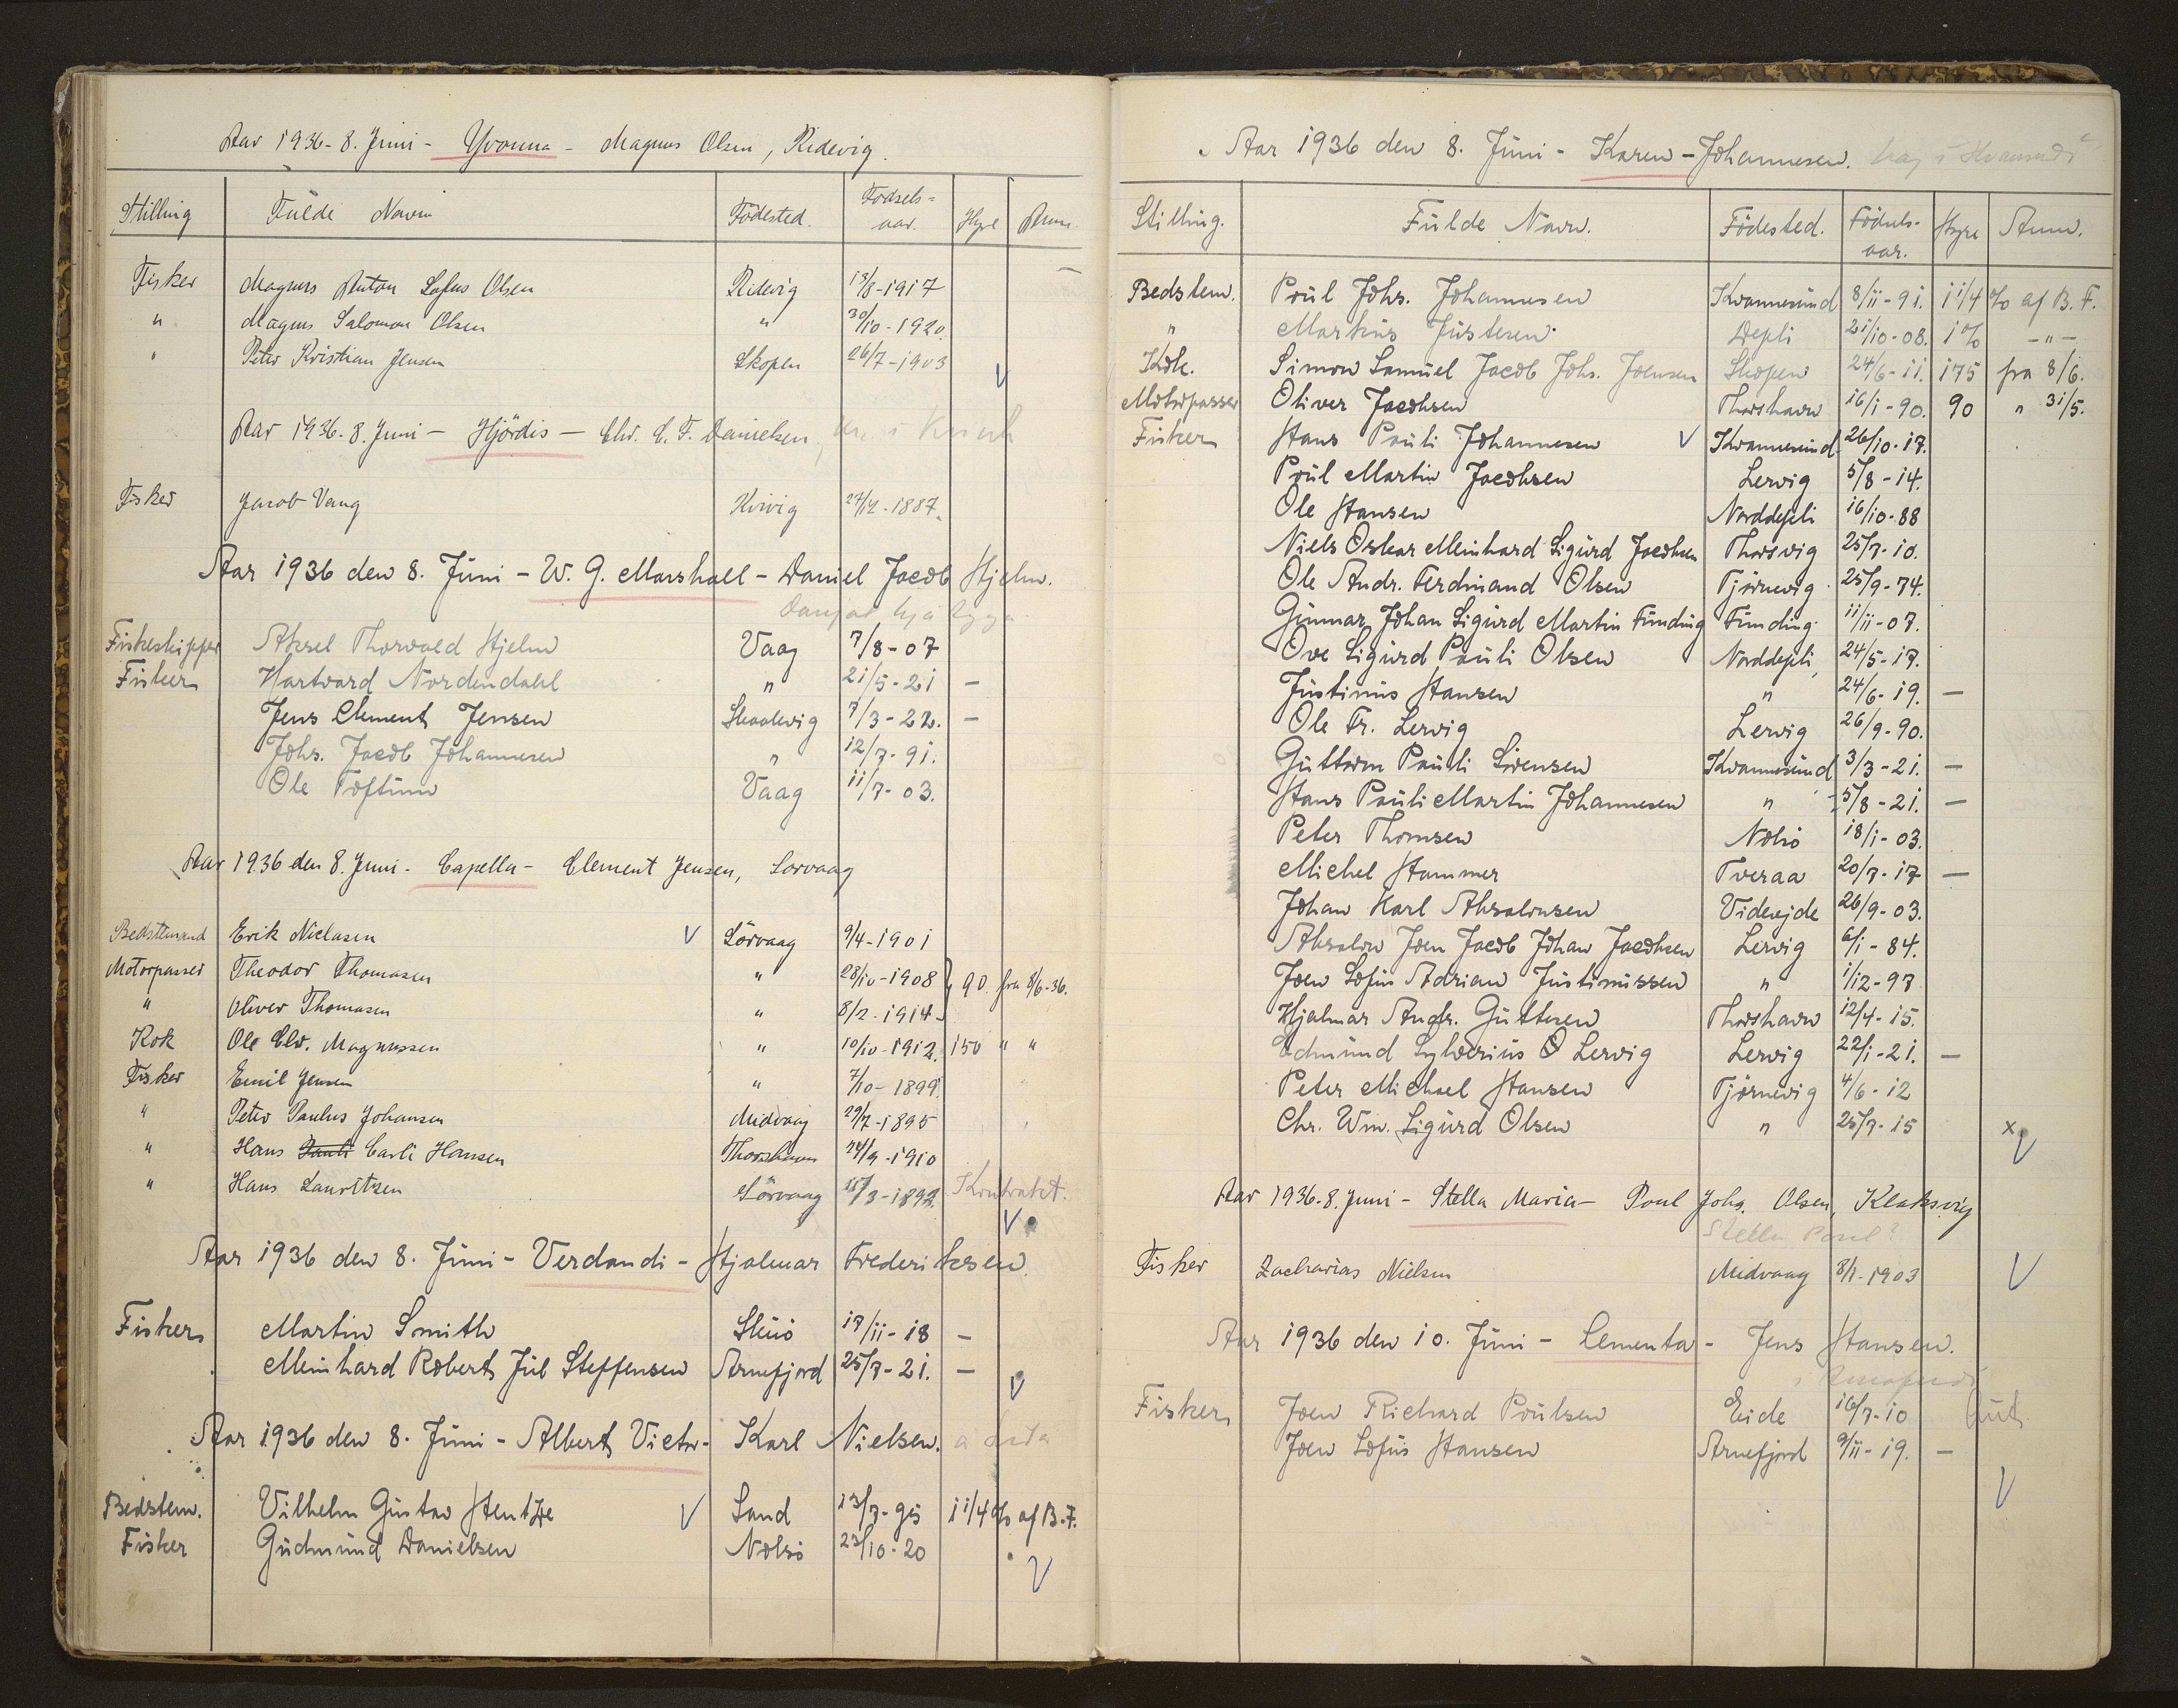 Aar 1936 - 8. Juni - Yvonna - Magnus Olsen, Ridevig.
Stilling Fulde Navn Födested. Födsels-aar. Hyre Anm.
Fisker Magnus Anton Sofus Olsen Ridevig 13/8-1917 —
" Magnus Salomon Olsen " 30/10-1920.
" Peter Kristian Jensen Skopen 26/7-1903 √
Aar 1936 - 8. Juni - Hjördis - Chr. C. F. Danielsen,
Fisker Jacob Vang Kvivig 27/12-1887.
Aar 1936 den 8. Juni - W. G. Marshall - Daniel Jacob Hjelm.
Fiskeskipper Aksel Thorvald Hjelm Vaag 7/8-07
Fisker Hartvard Nordendahl " 21/5-21 —
Jens Clement Jensen Skaalevig 7/3-22. —
Johs. Jacob Johannesen " 12/7-91.
Ole Toftum Vaag 11/7-03.
Aar 1936 den 8. Juni - Capella - Clement Jensen, Sorvaag
Bedstemand Erik Niclasen √ Sörvaag 9/4-1901
Motorpasser Theodor Thomasen " 28/10-1908 } 90. fra 8/6-36.
" Oliver Thomasen " 8/2-1914
Kok Ole Chr. Magnussen " 10/10-1912. 150 " "
Fisker Emil Jensen " 7/10-1899.
" Peter Paulus Johansen Midvaag 29/7-1895
" Hans Pauli Carli Hansen Thorshavn 24/9-1910
" Hans Lauritzen Sörvaag /3-1892. Kontrakt.
√
Aar 1936 den 8. Juni - Verdandi - Hjalmar Frederiksen.
Fisker Martin Smith Skuö 17/11-18 —
Meinhard Robert Jul Steffensen Arnefjord 25/7-21. —
√
Aar 1936 den 8. Juni - Albert Victor - Karl Nielsen.
Bedstem. Vilhelm Gustav Hentze √ Sand 13/7-95 1 1/4 % af B.F.
Fisker Gudmund Danielsen Nolsö 23/10-20
√
Aar 1936 den 8. Juni - Karen - Johannesen.
Stilling. Fulde Navn. Födested. Födsels-aar. Hyre Anm.
Bedstem. Poul Johs. Johannesen Kvannesund 8/11-91. 1 1/4 % af B.F.
" Markus Justesen Depli 21/10-08. 1% -"-
Kok. Simon Samuel Jacob Johs. Joensen Skopen 24/6-11. 175 fra 8/6.
Motorpasser Oliver Jacobsen Thorshavn 16/1-90. 90 " 31/5.
Fisker Hans Pauli Johannesen √ Kvannesund 26/10-17.
Poul Martin Jacobsen Lervig 5/8-14.
Ole Hansen Norddepli 16/10-88
Niels Oskar Meinhard Sigurd Jacobsen Thorsvig 25/7-10.
Ole Andr. Ferdinand Olsen Tjørnevig 25/9-74.
Gunnar Johan Sigurd Martin Funding Funding 11/11-07.
Ove Sigurd Pauli Olsen Norddepli 24/5-17.
Justinus Hansen " 24/6-19. —
Ole Fr. Lervig Lervig 26/9-90.
Guttorm Pauli Sörensen Kvannesund 3/3-21. —
Hans Pauli Martin Johannesen " 5/8-21. —
Peter Thomsen Nolsö 18/1-03.
Michel Hammer Tveraa 20/7-17 —
Johan Karl Absalonsen Viderejde 26/9-03.
Absalon Joen Jacob Johan Jacobsen Lervig 6/1-84.
Joen Sofus Adrian Justinussen " 1/12-97
Hjalmar Andr. Guttesen Thorshavn 12/4-15.
Edmund Sylverius O Lervig Lervig 22/1-21. —
Peter Michael Hansen Tjørnevig 4/6-12
Chr. Wm. Sigurd Olsen " 25/7-15 x
√
Aar 1936 - 8. Juni - Stella Maria - Poul Johs. Olsen, Klaksvig
Stella Poul?
Fisker Zacharias Nielsen Midvaag 8/1-1903 √
Aar 1936 den 10. Juni - Cementa - Jens Hansen.
Fisker Joen Richard Poulsen Eide 16/7-10
Joen Sofus Hansen Arnefjord 9/11-19. —
√